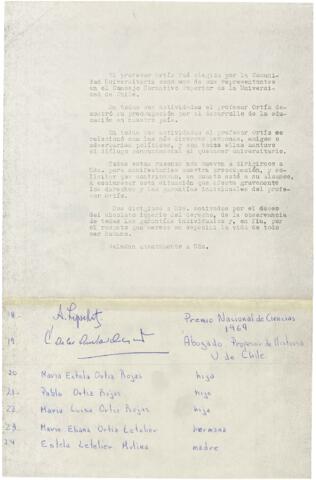 El profesor Ortíz fué elegido por la Comuni-
dad Universitaria como uno de sus representantes
en el Consejo Normativo Superior de la Universi-
dad de Chile.
En todas sus actividades el profesor Ortíz de-
mostró su preocupación por el desarrollo de la edu-
cación en nuestro país.
En todas sus actividades el profesor Ortíz se
relacionó con las más diversas personas, amigos o
adversarios políticos, y con todos ellos mantuvo
el diálogo permanente
Todas estas razones nos mueven a dirigirnos a
Uds. para manifestarles nuestra preocupación, y so-
licitar que contribuyan, en cuanto esté a su alcance,
a esclarecer esta situación que afecta gravemente
los derechos y las garantías individuales del profe-
sor Ortíz.
Nos dirigimos a Uds. motivados por el deseo
del absoluto imperio del derecho, de la observancia
de todas las garantías individuales y, en fin, por
el respeto que merece en especial la vida de todo
ser humano.
Saludan atentamente a Uds.
18 - A. Lipschutz Premio Nacional de Ciencias
1969
19 Abogado Profesor de Historia
U de Chile
20 María Estela Ortiz Rojas hija
21 - Pablo Ortiz Rojas hijo
22 - María Luisa Ortiz Rojas hija
23 - María Eliana Ortiz Letelier hermana
24 Estela Letelier Molina madre